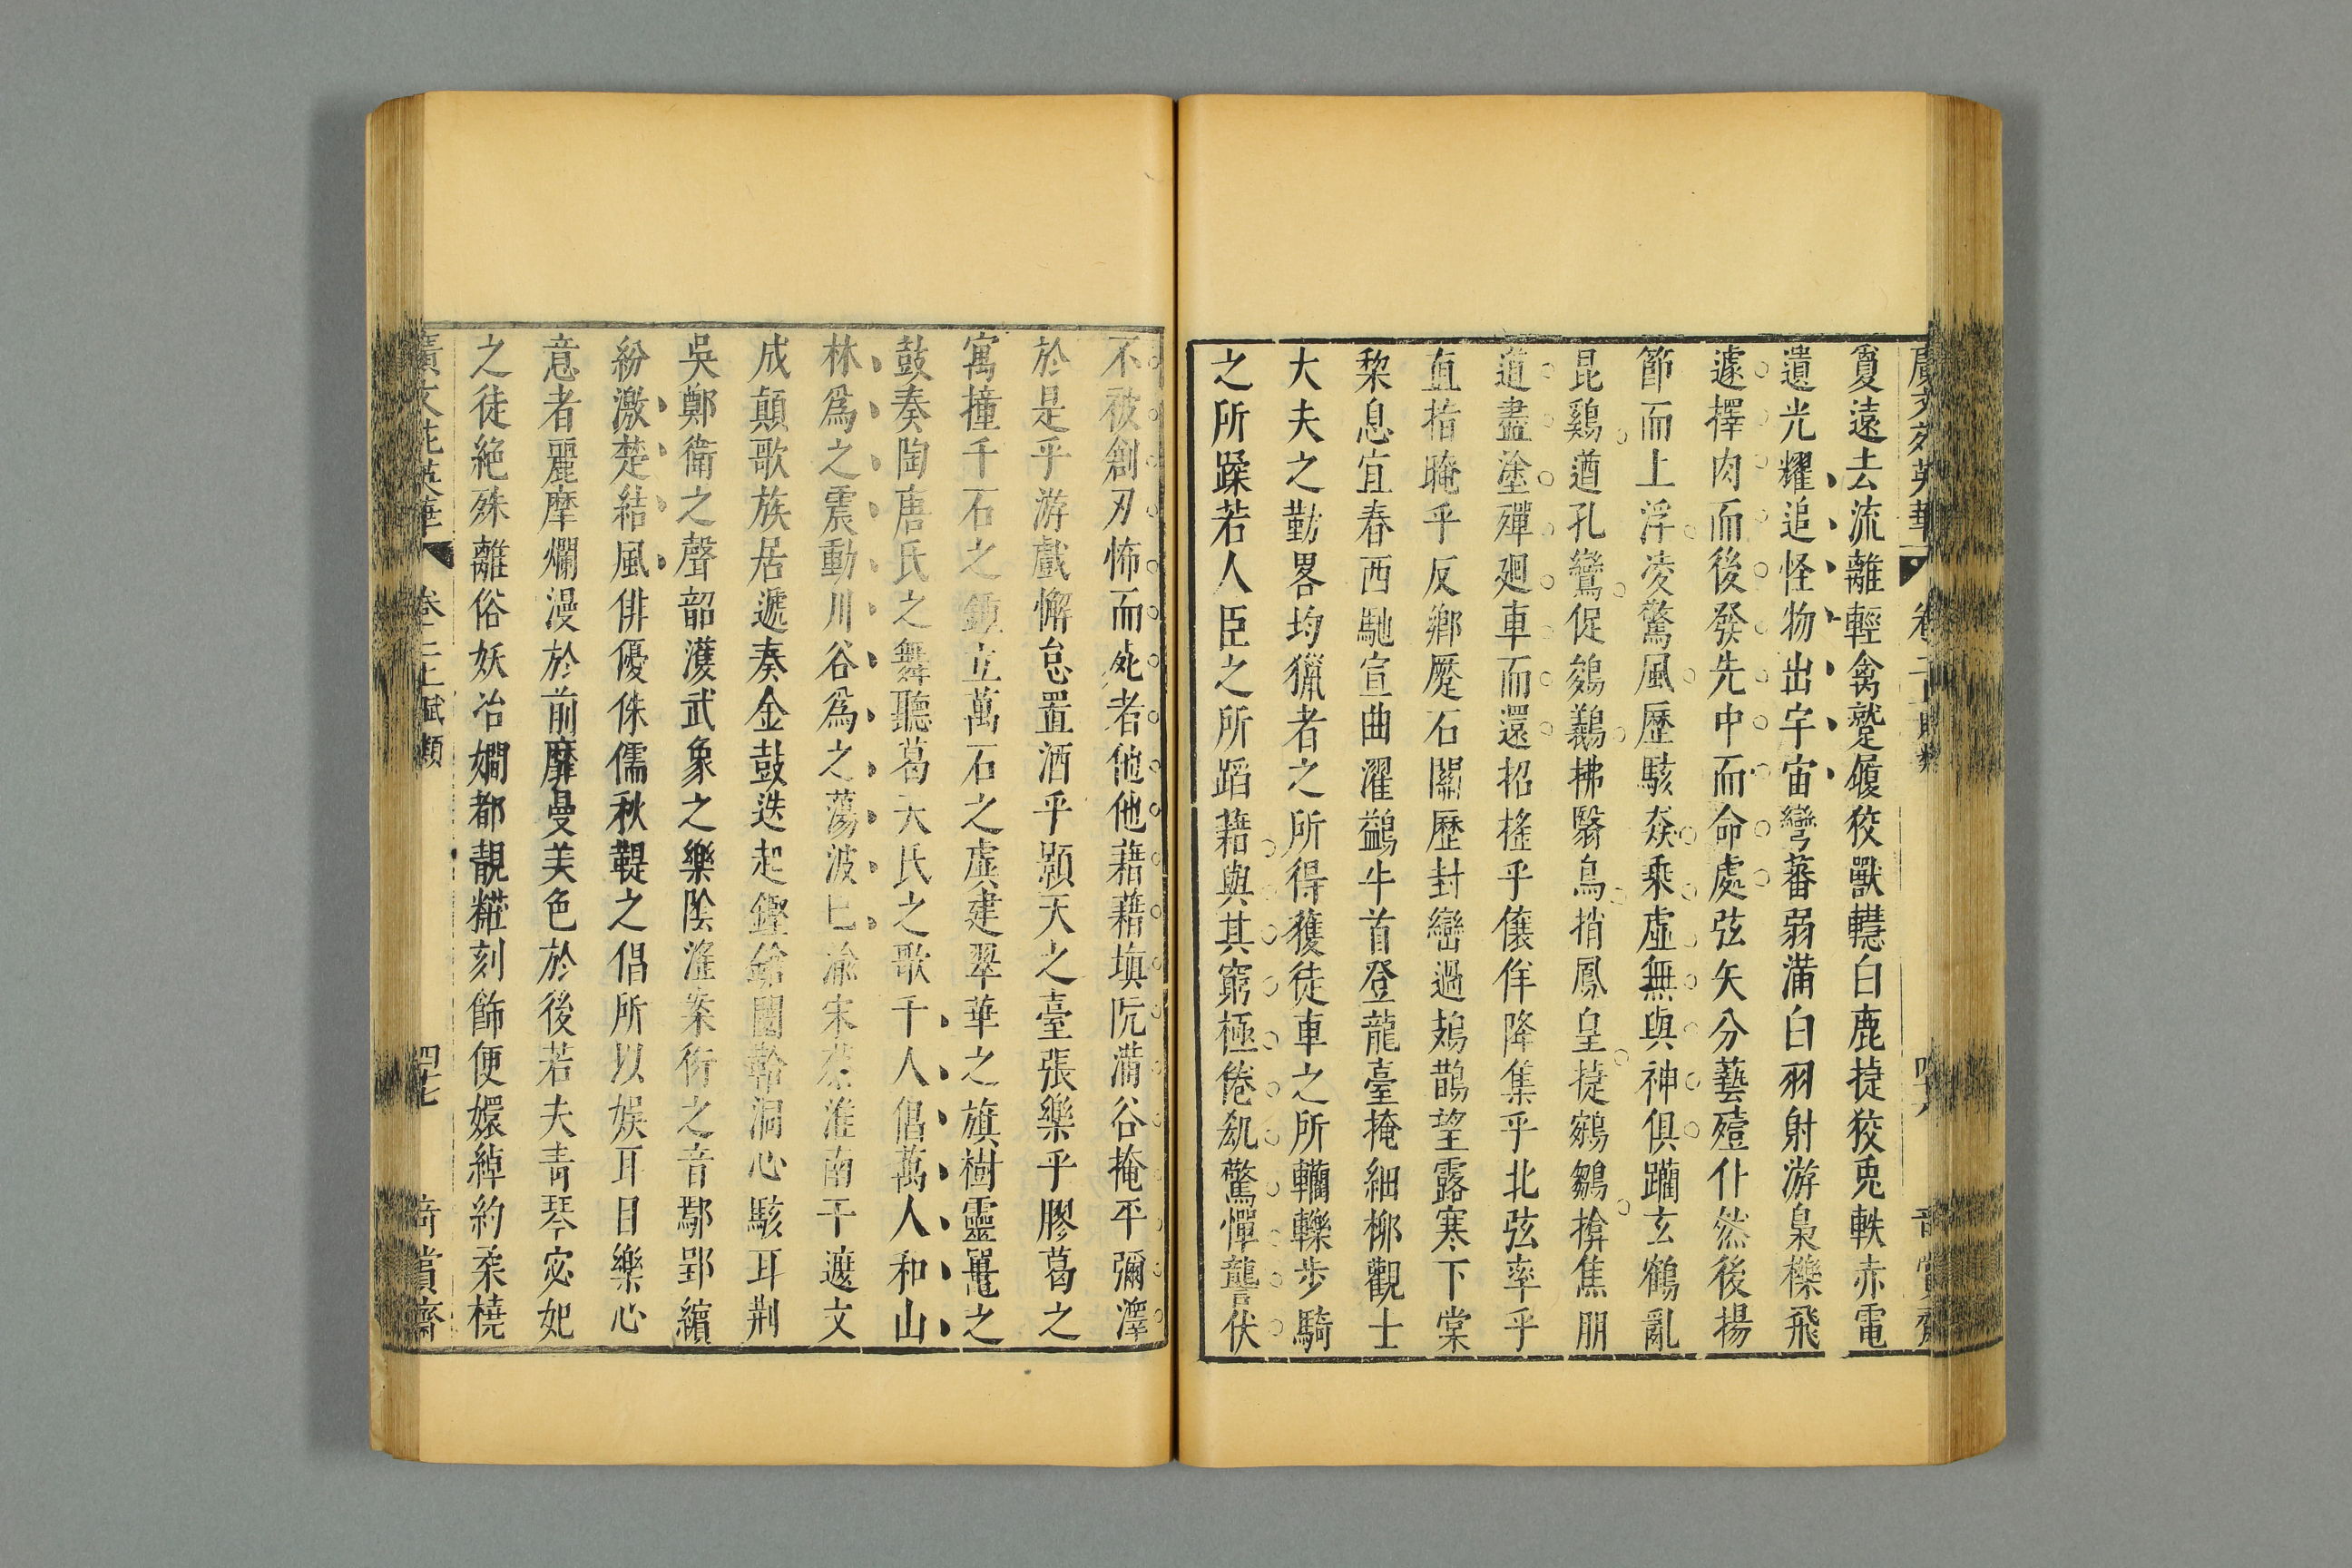 廣文苑英華 卷二上 賦類 四六 奇賞齋
夐遠去流離輕禽蹵履狡獸轊白鹿㨗狡兎軼赤電
遺光耀追怪物出宇宙彎蕃弱滿白羽射游梟櫟飛
遽擇肉而後發先中而命處弦矢分藝殪仆然後揚
節而上浮凌驚風歷駭猋乘虛無與神俱躪玄鶴亂
昆鷄遒孔鸞促鵕鸃拂翳鳥捎鳳皇㨗鵷鶵揜焦朋
道盡塗殫廻車而還招搖乎儴佯降集乎北弦率乎
直指晻乎反鄉蹷石關歷封巒過鳷鵲望露寒下棠
棃息宜春西馳宣曲濯鷁牛首登龍臺掩細柳觀士
大夫之勤畧均獵者之所得獲徒車之所轥轢步騎
之所蹂若人臣之所蹈藉與其窮極倦㕁驚憚讋伏
不被創刃怖而死者他他藉藉塡阬滿谷掩平彌澤
於是乎游戲懈怠置酒乎顥天之臺張樂乎膠葛之
寓撞千石之鍾立萬石之虡建翠華之旗樹靈鼉之
鼓奏陶唐氏之舞聽葛天氏之歌千人倡萬人和山
林爲之震動川谷爲之蕩波巴渝宋蔡淮南干遮文
成顛歌族居遞奏金鼓迭起鏗鎗闛鞈洞心駭耳荆
吳鄭衛之聲韶濩武象之樂陰淫案衍之音鄢郢繽
紛激楚結風俳優侏儒秋鞮之倡所以娛耳目樂心
意者麗摩爛漫於前靡曼美色於後若夫靑琴宓妃
之徒絶殊離俗妖冶嫺都靚糚刻飾便嬛綽約柔橈
廣文苑英華 卷二上賦類 四七 奇賞齋